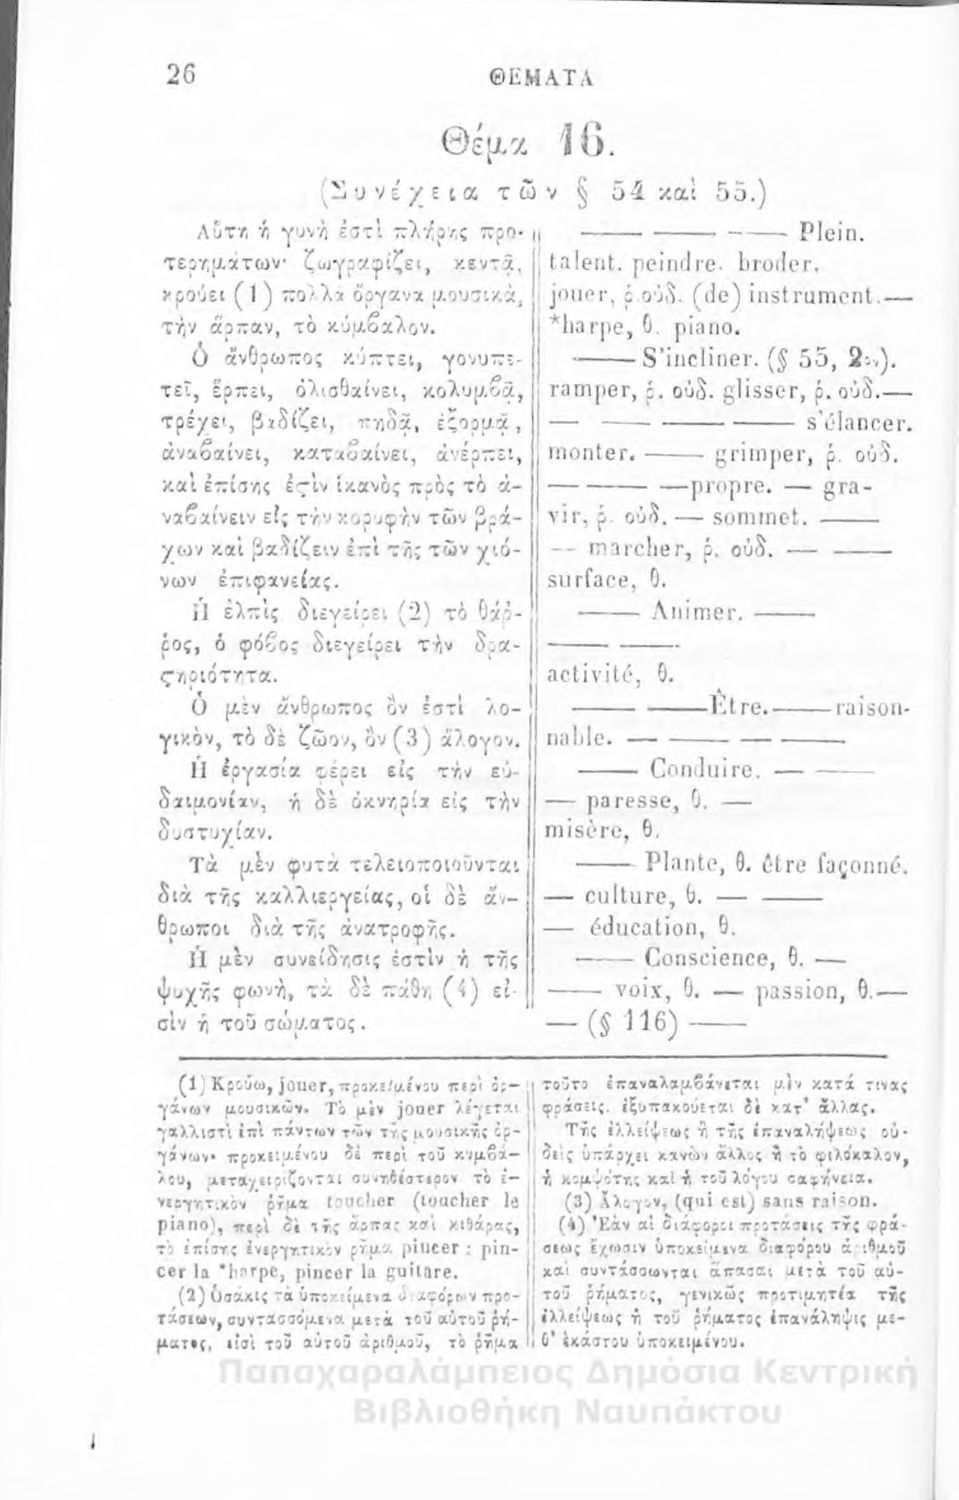 26
ΘΕΜΑΤΑ
Θέμα 16.
(Συνέχεια τῶν § 54 καὶ 55.)
Αὕτη ἡ γυνὴ ἐστὶ πλήρης προ-
τερημάτων· ζωγραφίζει, κεντᾷ,
κρούει (1) πολλὰ ὄργανα μουσικὰ,
τὴν ἅρπαν, τὸ κύμβαλον.
Ὁ ἄνθρωπος κύπτει, γονυπε-
τεῖ, ἕρπει, ὀλισθαίνει, κολυμβᾷ,
τρέχει, βαδίζει, πηδᾷ, ἐξορμᾷ,
ἀναβαίνει, καταβαίνει, ἀνέρπει,
καὶ ἐπίσης ἐςὶν ἱκανὸς πρὸς τὸ ἀ-
ναβαίνειν εἰς τὴν κορυφὴν τῶν βρά-
χων καὶ βαδίζειν ἐπὶ τῆς τῶν χιό-
νων ἐπιφανείας.
Ἡ ἐλπὶς διεγείρει (2) τὸ θάῤ-
ῥος, ὁ φόβος διεγείρει τὴν δρα-
ςηριότητα.
Ὁ μὲν ἄνθρωπος ὂν ἐστὶ λο-
γικὸν, τὸ δὲ ζῶον, ὂν (3) ἄλογον.
Ἡ ἐργασία φέρει εἰς τὴν εὐ-
δαιμονίαν, ἡ δὲ ὀκνηρία εἰς τὴν
δυστυχίαν.
Τὰ μὲν φυτὰ τελειοποιοῦνται
διὰ τῆς καλλιεργείας, οἱ δὲ ἄν-
θρωποι διὰ τῆς ἀνατροφῆς.
Ἡ μὲν συνείδησις ἐστὶν ἡ τῆς
ψυχῆς φωνὴ, τὰ δὲ πάθη (4) εἰ-
σὶν ἡ τοῦ σώματος.
——— ——— ——— Plein.
talent. peindre. broder.
jouer, ῥ. οὐδ. (de) instrument. —
*harpe, θ. piano.
——— S'incliner. (§ 55, 2ον).
ramper, ῥ. οὐδ. glisser, ῥ. οὐδ. —
— — ——— ——— s'élancer.
monter. ——— grimper, ῥ. οὐδ.
— ——— — propre. — gra-
vir, ῥ. οὐδ. — sommet. ———
— marcher, ῥ. οὐδ. — ———
surface, θ.
——— Animer. ———
——— ———
activité, θ.
——— ——— Être. ——— raison-
nable. — — ——— ———
——— Conduire. — ———
— paresse, θ. —
misère, θ.
——— Plante, θ. être façonné.
— culture, θ. — ———
— éducation, θ.
——— Conscience, θ. —
——— voix, θ. — passion, θ. —
— (§ 116) ———
(1) Κρούω, jouer, προκειμένου περὶ ὀρ-
γάνων μουσικῶν. Τὸ μὲν jouer λέγεται
γαλλιστὶ ἐπὶ πάντων τῶν τῆς μουσικῆς ὀρ-
γάνων· προκειμένου δὲ περὶ τοῦ κυμβά-
λου, μεταχειρίζονται συνηθέστερον τὸ ἐ-
νεργητικὸν ῥῆμα toucher (toucher le
piano), περὶ δὲ τῆς ἅρπας καὶ κιθάρας,
τὸ ἐπίσης ἐνεργητικὸν ῥῆμα pincer : pin-
cer la *harpe, pincer la guitare.
(2) Ὁσάκις τὰ ὑποκείμενα διαφόρων προ-
τάσεων, συντασσόμενα μετὰ τοῦ αὐτοῦ ῥή-
ματος, εἰσὶ τοῦ αὐτοῦ ἀριθμοῦ, τὸ ῥῆμα
τοῦτο ἐπαναλαμβάνεται μὲν κατά τινας
φράσεις, ἐξυπακούεται δὲ κατ' ἄλλας.
Τῆς ἐλλείψεως ἢ τῆς ἐπαναλήψεως οὐ-
δεὶς ὑπάρχει κανὼν ἄλλος ἢ τὸ φιλόκαλον,
ἡ κομψότης καὶ ἡ τοῦ λόγου σαφήνεια.
(3) Ἄλογον, (qui est) sans raison.
(4) Ἐὰν αἱ διάφοροι προτάσεις τῆς φρά-
σεως ἔχωσιν ὑποκείμενα διαφόρου ἀριθμοῦ
καὶ συντάσσωνται ἅπασαι μετὰ τοῦ αὐ-
τοῦ ῥήματος, γενικῶς προτιμητέα τῆς
ἐλλείψεως ἡ τοῦ ῥήματος ἐπανάληψις με-
θ' ἑκάστου ὑποκειμένου.
Παπαχαραλάμπειος Δημόσια Κεντρική
Βιβλιοθήκη Ναυπάκτου